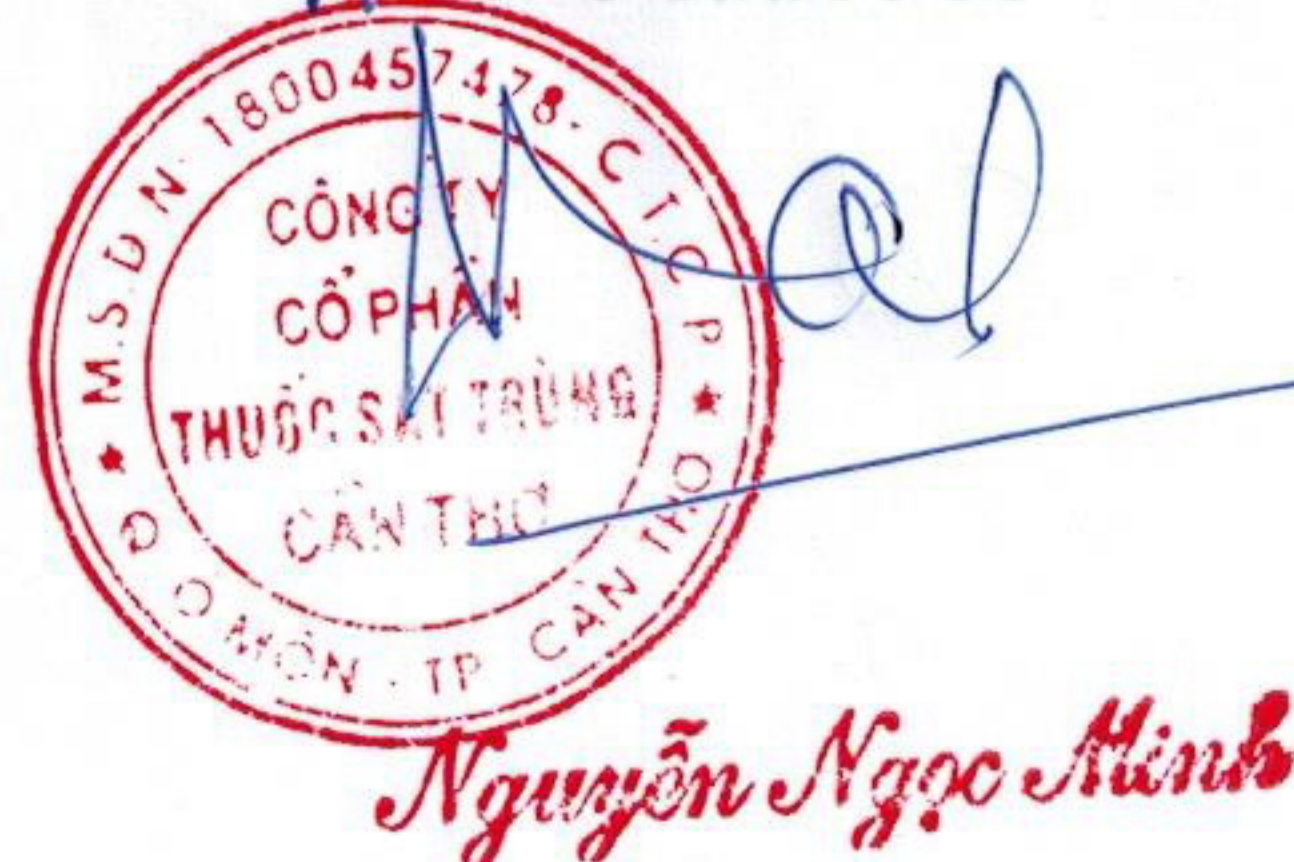 M.S.D.N: 1800457478-C.T.C.P
CÔNG TY
CỔ PHẦN
THUỐC SÁT TRÙNG
CẦN THƠ
Q. Ô MÔN - TP. CẦN THƠ
Nguyễn Ngọc Minh